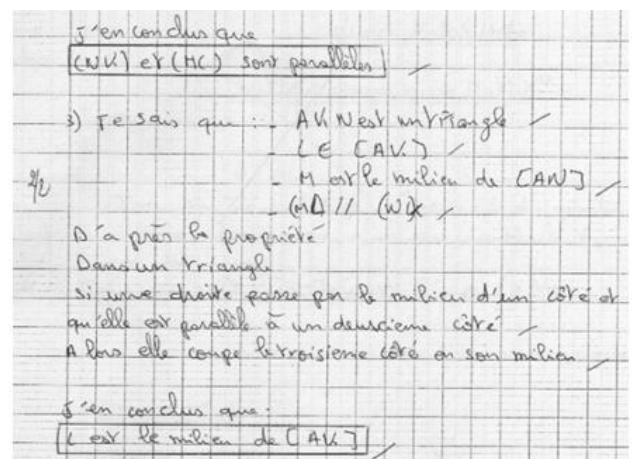 J'en conclus que
(NK) et (MC) sont parallèles
3) Je sais que : - AKN est un triangle
- L ∈ [AK]
- M est le milieu de [AN]
2/2
- (ML) // (NK)
D'après la propriété
Dans un triangle
si une droite passe par le milieu d'un côté et
qu'elle est parallèle à un deuxcieme côté
Alors elle coupe le troisieme côté en son milieu
J'en conclus que :
L est le milieu de [AK]